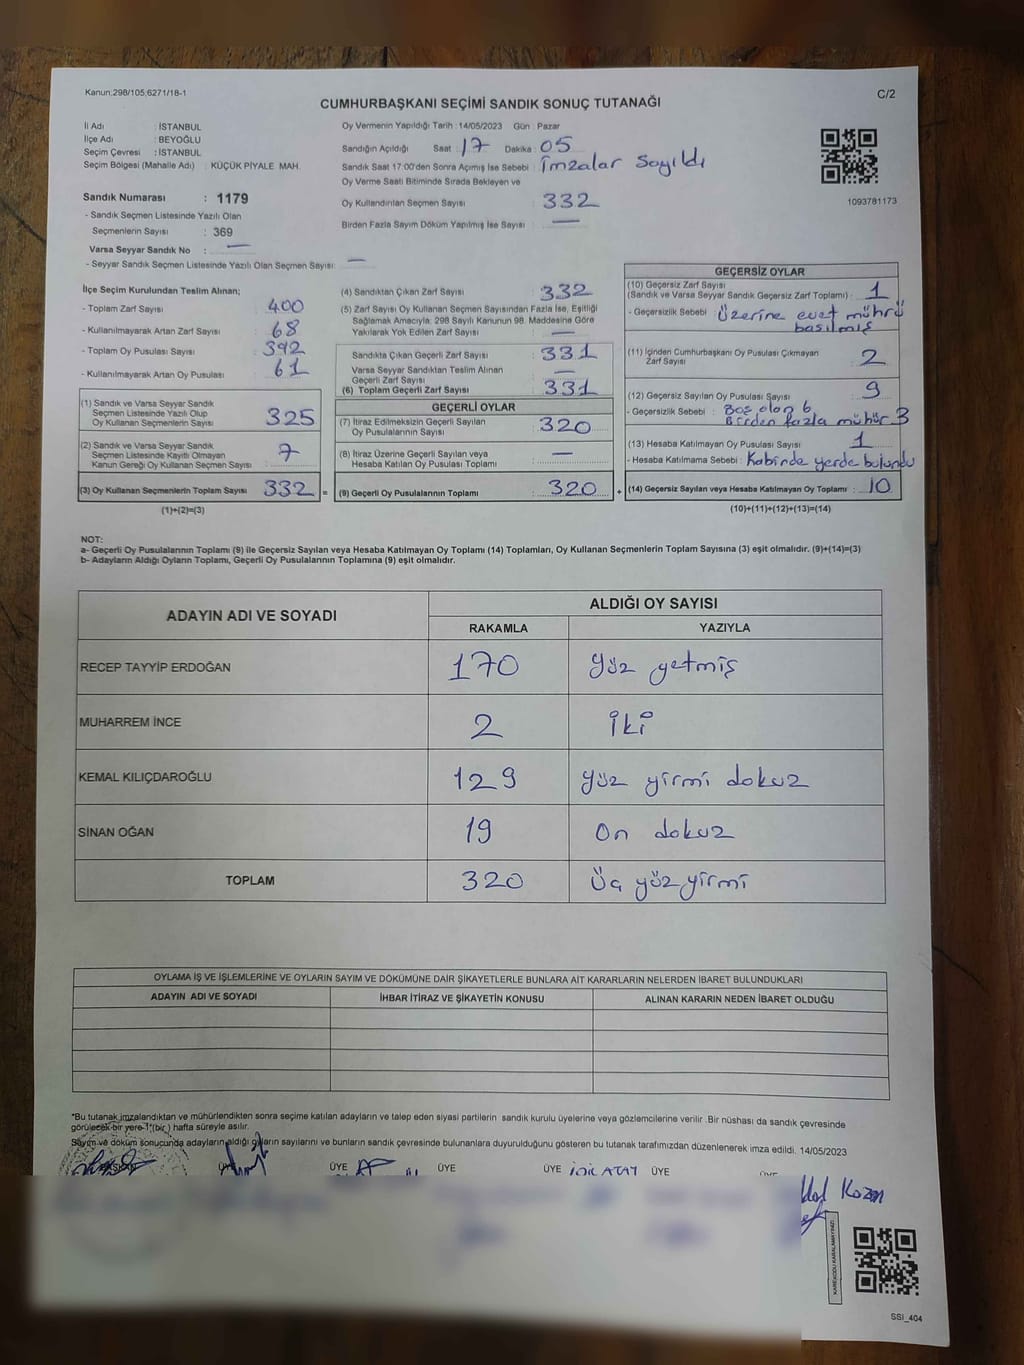 Kanun:298/105;6271/18-1
C/2
CUMHURBAŞKANI SEÇİMİ SANDIK SONUÇ TUTANAĞI
İl Adı : İSTANBUL
İlçe Adı : BEYOĞLU
Seçim Çevresi : İSTANBUL
Seçim Bölgesi (Mahalle Adı) : KÜÇÜK PİYALE MAH.
Oy Vermenin Yapıldığı Tarih : 14/05/2023 Gün : Pazar
Sandığın Açıldığı Saat : 17 Dakika : 05
Sandık Saat 17:00'den Sonra Açımış İse Sebebi : İmzalar Sayıldı
Oy Verme Saati Bitiminde Sırada Bekleyen ve
Oy Kullandırılan Seçmen Sayısı : 332
Birden Fazla Sayım Döküm Yapılmış İse Sayısı : —
1093781173
Sandık Numarası : 1179
- Sandık Seçmen Listesinde Yazılı Olan
Seçmenlerin Sayısı : 369
Varsa Seyyar Sandık No : —
- Seyyar Sandık Seçmen Listesinde Yazılı Olan Seçmen Sayısı: —
İlçe Seçim Kurulundan Teslim Alınan;
- Toplam Zarf Sayısı : 400
- Kullanılmayarak Artan Zarf Sayısı : 68
- Toplam Oy Pusulası Sayısı : 392
- Kullanılmayarak Artan Oy Pusulası : 61
(1) Sandık ve Varsa Seyyar Sandık
Seçmen Listesinde Yazılı Olup
Oy Kullanan Seçmenlerin Sayısı : 325
(2) Sandık ve Varsa Seyyar Sandık
Seçmen Listesinde Kayıtlı Olmayan
Kanun Gereği Oy Kullanan Seçmen Sayısı : 7
(3) Oy Kullanan Seçmenlerin Toplam Sayısı : 332 =
(1)+(2)=(3)
(4) Sandıktan Çıkan Zarf Sayısı : 332
(5) Zarf Sayısı Oy Kullanan Seçmen Sayısından Fazla İse, Eşitliği
Sağlamak Amacıyla; 298 Sayılı Kanunun 98. Maddesine Göre
Yakılarak Yok Edilen Zarf Sayısı : —
Sandıkta Çıkan Geçerli Zarf Sayısı : 331
Varsa Seyyar Sandıktan Teslim Alınan
Geçerli Zarf Sayısı : —
(6) Toplam Geçerli Zarf Sayısı : 331
GEÇERLİ OYLAR
(7) İtiraz Edilmeksizin Geçerli Sayılan
Oy Pusulalarının Sayısı : 320
(8) İtiraz Üzerine Geçerli Sayılan veya
Hesaba Katılan Oy Pusulası Toplamı : —
(9) Geçerli Oy Pusulalarının Toplamı : 320 +
GEÇERSİZ OYLAR
(10) Geçersiz Zarf Sayısı
(Sandık ve Varsa Seyyar Sandık Geçersiz Zarf Toplamı) : 1
- Geçersizlik Sebebi : Üzerine evet mührü
basılmış
(11) İçinden Cumhurbaşkanı Oy Pusulası Çıkmayan
Zarf Sayısı : 2
(12) Geçersiz Sayılan Oy Pusulası Sayısı : 9
- Geçersizlik Sebebi : Boş olan 6
Birden fazla mühür 3
(13) Hesaba Katılmayan Oy Pusulası Sayısı : 1
- Hesaba Katılmama Sebebi : Kabinde yerde bulundu
(14) Geçersiz Sayılan veya Hesaba Katılmayan Oy Toplamı : 10
(10)+(11)+(12)+(13)=(14)
NOT:
a- Geçerli Oy Pusulalarının Toplamı (9) ile Geçersiz Sayılan veya Hesaba Katılmayan Oy Toplamı (14) Toplamları, Oy Kullanan Seçmenlerin Toplam Sayısına (3) eşit olmalıdır. (9)+(14)=(3)
b- Adayların Aldığı Oyların Toplamı, Geçerli Oy Pusulalarının Toplamına (9) eşit olmalıdır.
ADAYIN ADI VE SOYADI ALDIĞI OY SAYISI
RAKAMLA YAZIYLA
RECEP TAYYİP ERDOĞAN 170 yüz yetmiş
MUHARREM İNCE 2 iki
KEMAL KILIÇDAROĞLU 129 yüz yirmi dokuz
SİNAN OĞAN 19 On dokuz
TOPLAM 320 Üç yüz yirmi
OYLAMA İŞ VE İŞLEMLERİNE VE OYLARIN SAYIM VE DÖKÜMÜNE DAİR ŞİKAYETLERLE BUNLARA AİT KARARLARIN NELERDEN İBARET BULUNDUKLARI
ADAYIN ADI VE SOYADI İHBAR İTİRAZ VE ŞİKAYETİN KONUSU ALINAN KARARIN NEDEN İBARET OLDUĞU
*Bu tutanak imzalandıktan ve mühürlendikten sonra seçime katılan adayların ve talep eden siyasi partilerin sandık kurulu üyelerine veya gözlemcilerine verilir .Bir nüshası da sandık çevresinde
görülecek bir yere 1 (bir ) hafta süreyle asılır.
Sayım ve döküm sonucunda adayların aldığı oyların sayılarını ve bunların sandık çevresinde bulunanlara duyurulduğunu gösteren bu tutanak tarafımızdan düzenlenerek imza edildi. 14/05/2023
BAŞKAN ÜYE ÜYE ÜYE ÜYE ÜYE
Kozan
KAREKODU KARALAMAYINIZ!
SSI_404